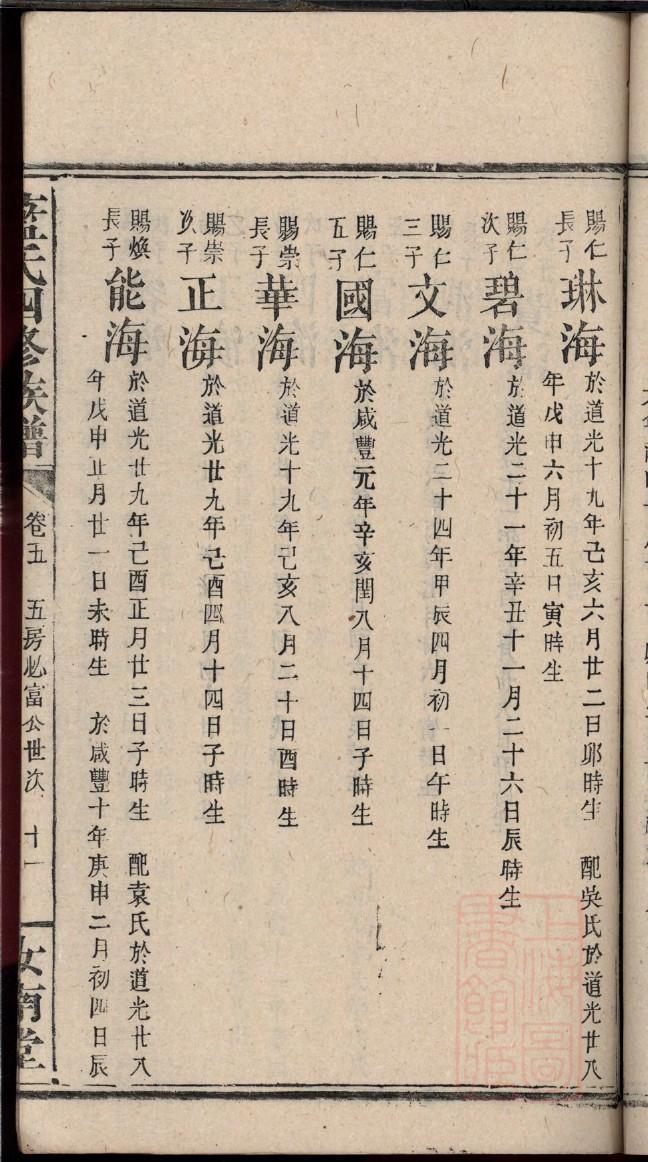 賜仁
長子
琳海
於道光十九年己亥六月廿二日卯時生 配吳氏於道光廿八
年戊申六月初五日寅時生
賜仁
次子
碧海
於道光二十一年辛丑十一月二十六日辰時生
賜仁
三子
文海
於道光二十四年甲辰四月初一日午時生
賜仁
五子
國海
於咸豐元年辛亥閏八月十四日子時生
賜崇
長子
華海
於道光十九年己亥八月二十日酉時生
賜崇
次子
正海
於道光廿九年己酉四月十四日子時生
賜煥
長子
能海
於道光廿九年己酉正月廿三日子時生 配袁氏於道光廿八
年戊申正月廿一日未時生 於咸豐十年庚申二月初四日辰
藍氏四修族譜 卷五 五房必富公世次 十一 汝南堂
上海圖
書館藏